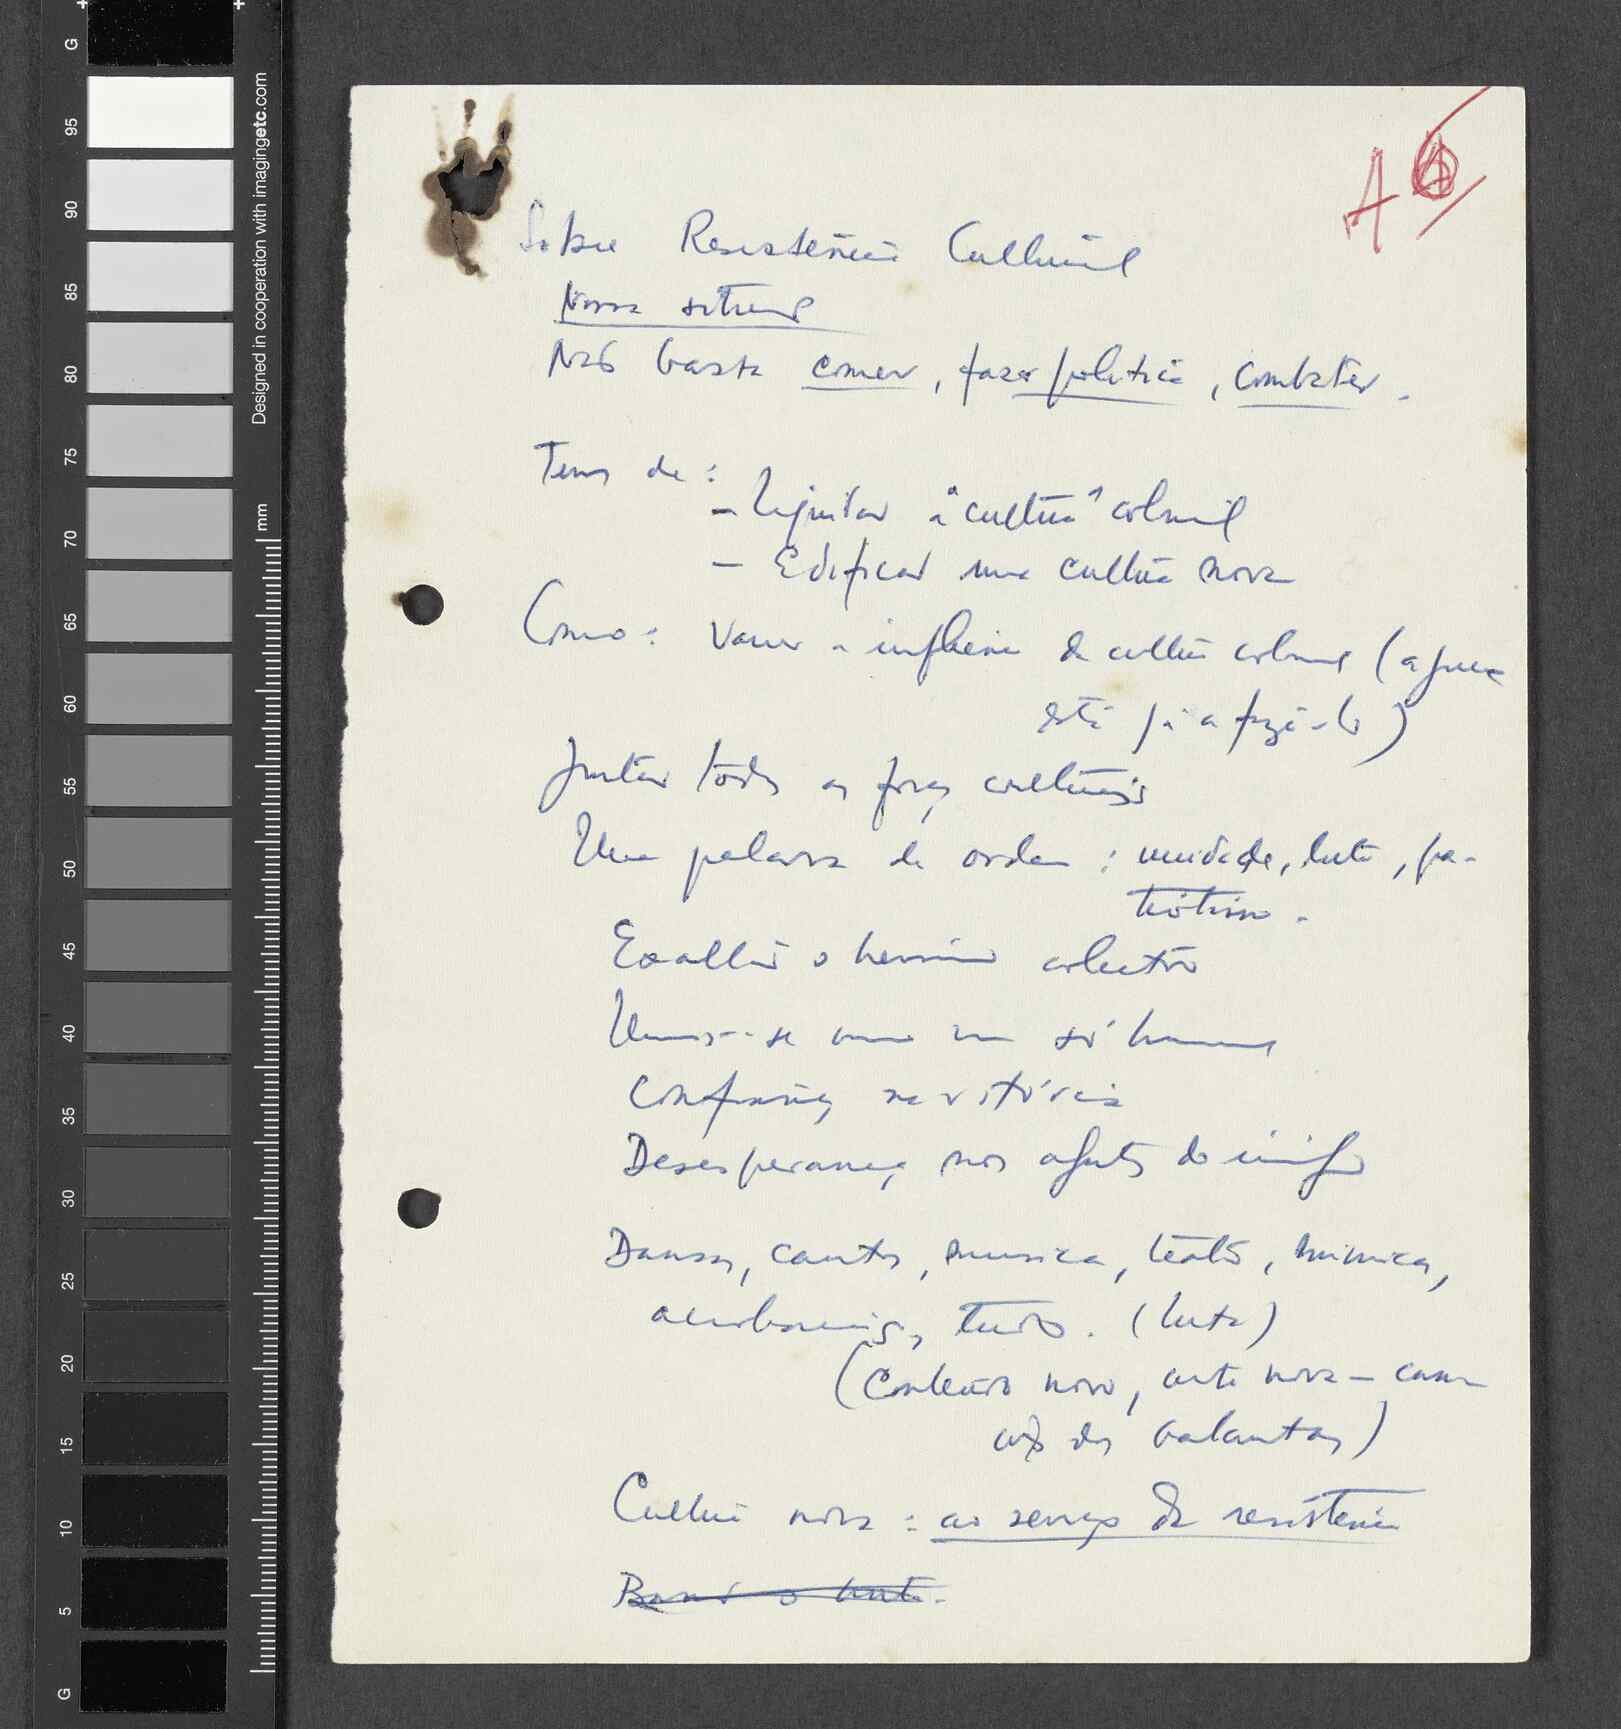 A
Sobre Resistência Cultural
Nossa
Não basta comer, fazer política, combater.
Temos de:
– Liquidar a "cultura" colonial
– Edificar uma cultura nova
Como: Vencer a influência da cultura colonial (a guerra
está já a fazê-lo)
Juntar todas as forças culturais
Uma palavra de ordem: unidade, luta, pa-
triotismo.
Exaltar o heroísmo colectivo
Unamos-se como um só homem
Confiança na vitória
Desesperança nos do inimigo
Danças, cantos, musica, teatro, mimica,
acrobacias, tudo. (luta)
(Conteúdo novo, arte nova – como
dos balantas)
Cultura nova: ao serviço da resistência
G
95
90
85
80
75
70
65
60
55
50
45
40
35
30
25
20
15
10
5
G
Designed in cooperation with imagingetc.com
mm